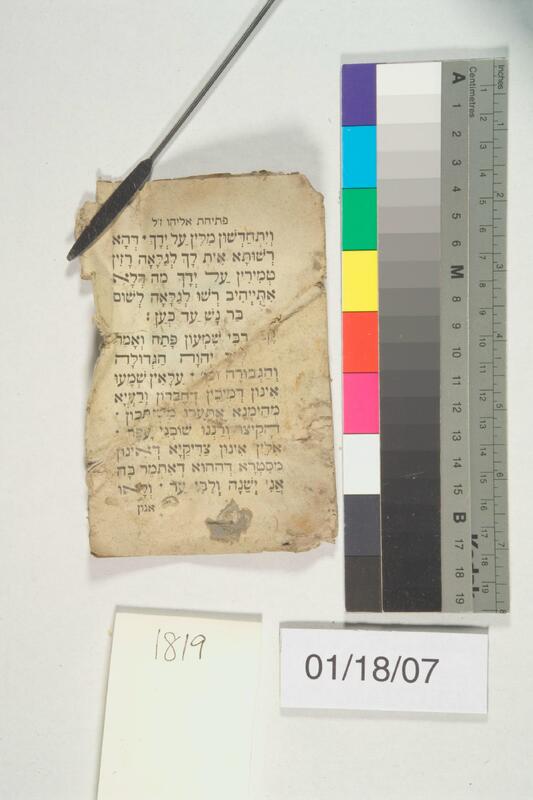 פתיחת אליהו ז"ל
וְיִתְחַדְּשׁוּן מִלִּין עַל יְדָךְ • דְּהָא
רְשׁוּתָא אִית לָךְ לְגַלָּאָה רָזִין
טְמִירִין עַל יְדָךְ מַה דְּלָא
אִתְיִיהִיב רְשׁוּ לְגַלָּאָה לְשׁוּם
בַּר נָשׁ עַד כְּעַן :
רַבִּי שִׁמְעוֹן פָּתַח וְאָמַר
יְהֹוָה הַגְּדוּלָּה
וְהַגְּבוּרָה עִלָּאִין שְׁמָעוּ
אִינּוּן דְּמִיכִין דְּחֶבְרוֹן וְרַעְיָא
מְהֵימְנָא אִתְּעָרוּ •
הָקִיצוּ וְרַנְּנוּ שׁוֹכְנֵי עָפָר •
אִלֵּין אִינּוּן צַדִּיקַיָּא דְּאִינּוּן
מִסִּטְרָא דְּהַהוּא דְּאִתְּמַר בָּהּ
אֲנִי יְשֵׁנָה וְלִבִּי עֵר • וְלָאו
אנון
Inches
Centimetres
1
2
3
4
5
6
7
8
A
1
2
3
4
5
6
M
8
9
10
11
12
13
14
15
B
17
18
19
1819
01/18/07